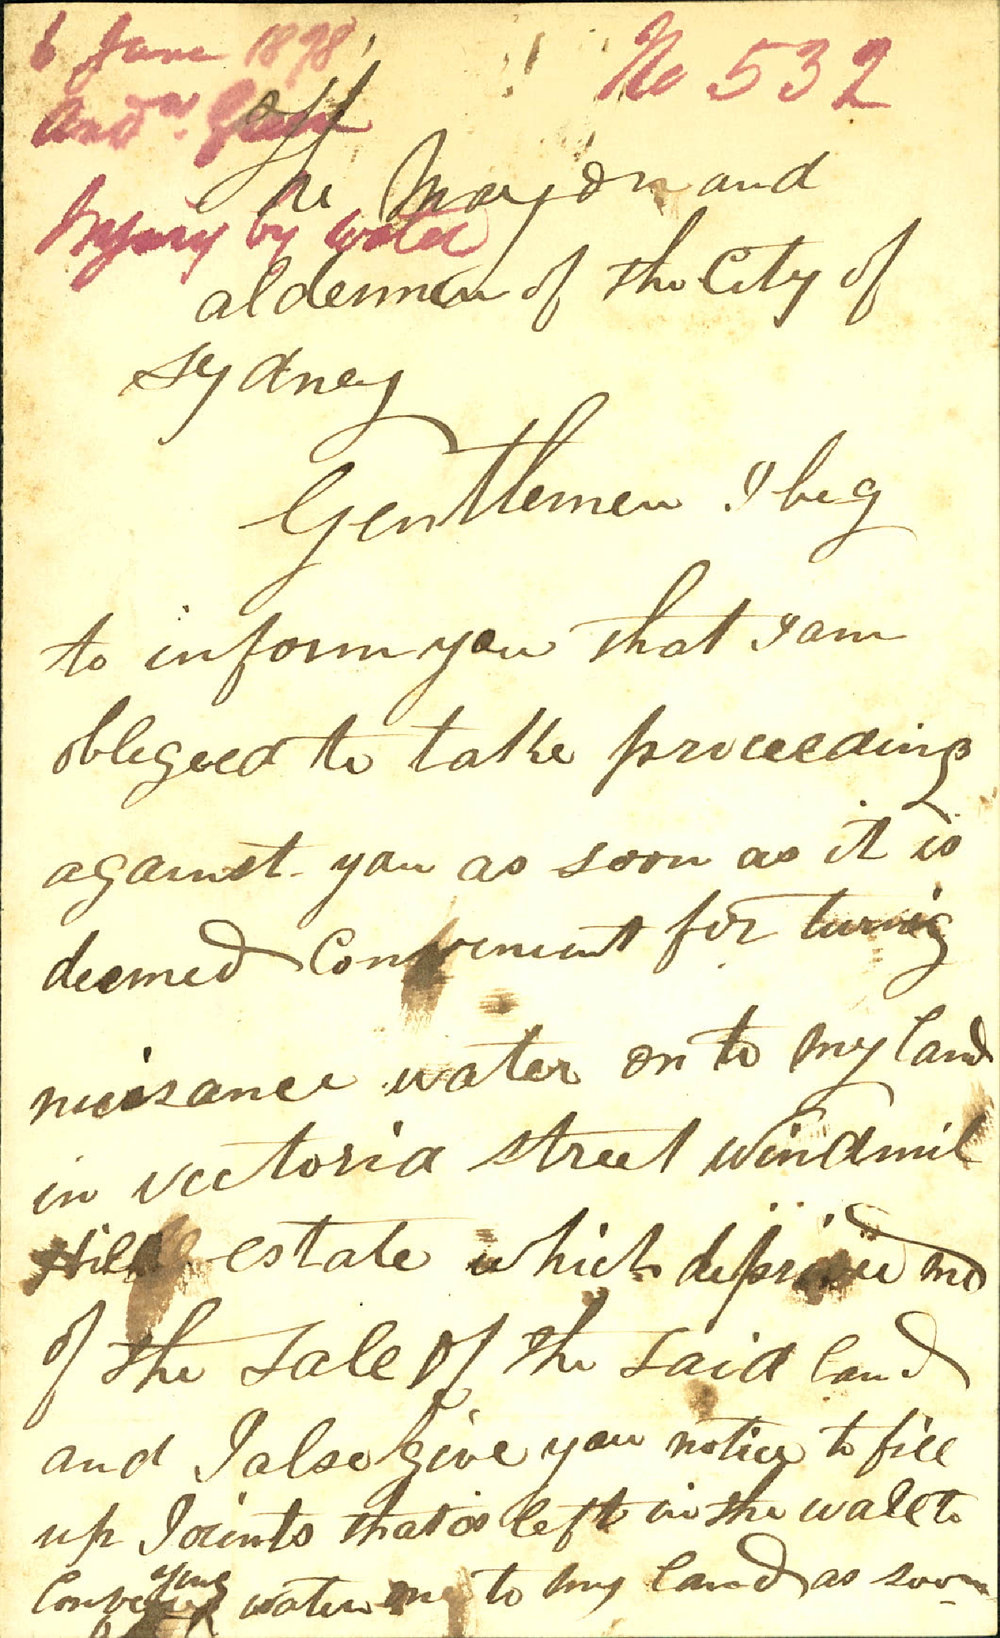 6 June 1898
No 532
Andw. Gra
To
The Mayor and
Injury by water
aldermen of the City of
Sydney
Gentlemen I beg
to inform you that I am
oblegeed to take proceedings
against you as soon as it is
deemed Convenient for turnig
nuisance water on to my land
in victoria street windmil
Hill estate which deprive me
of the sale of the said land
and I also give you notice to fill
up Joints that is left in the wall to
Conveying water on to my land as soon